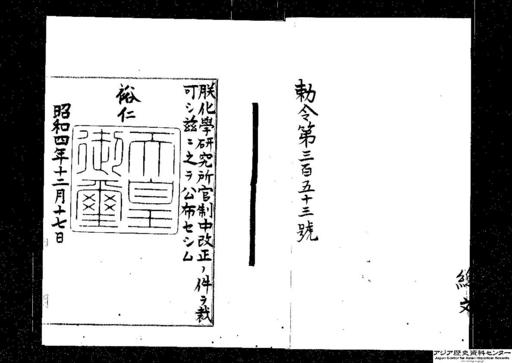 勅令第三百五十三號
朕化學研究所官制中改正ノ件ヲ裁
可シ茲ニ之ヲ公布セシム
裕仁
天皇
御璽
昭和四年十二月十七日
アジア歴史資料センター
Japan Center for Asian Historical Records